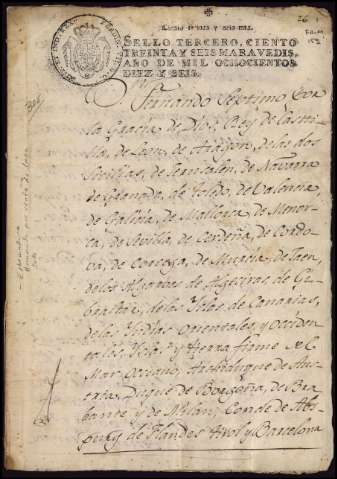 SELLO TERCERO, CIENTO
TREINTA Y SEIS MARAVEDIS,
AÑO DE MIL OCHOCIENTOS
DIEZ Y SEIS.
D. Fernando Septimo Por
la Gracia de Dios, Rey de Casti
lla, de Leon, de Aragon, de las dos
Sicilias, de Jerusalen, de Navarra
de Granada, de Toledo, de Valencia,
de Galicia, de Mallorca, de Menor
ca, de Sevilla, de Cerdeña, de Cordo
va, de Corcega, de Murcia, de Jaen,
de los Algarbes de Algeciras, de Gi
braltar, de las Yslas de Canarias,
de las Yndias Orientales, y Occiden
tales, Yslas y tierra firme el
Mar Occeano, Archiduque de Aus
tria, Duque de Borgoña, de Bra
bante y de Milan, Conde de Abs
purg, de Flandes, Tirol y Barcelona